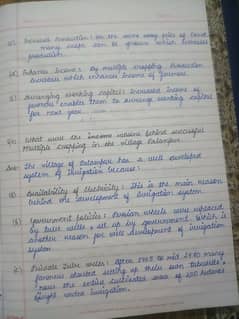 Increased Production: On the same piece of land
many crops can be grown which increases
production.
Enhances Income: By multiple cropping Production
increases which enhances Income of farmers.
Arranging working capital: Increased Income of
farmers enables them to arrange working capital
for next year.
What were the reasons behind successful
Multiple cropping in the village Palampur
Ans: The village of Palampur has a well developed
system of Irrigation because:
Availability of Electricity: This is the main reason
behind the development of Irrigation system.
Government policies: Persian wheels were replaced
by tube wells, set up by government, which is
another reason for well development of irrigation
system.
Private Tube wells: After 1965 to mid 1970 many
farmers started setting up their own tubewells.
now the entire cultivated area of 200 hectares
brought under irrigation.